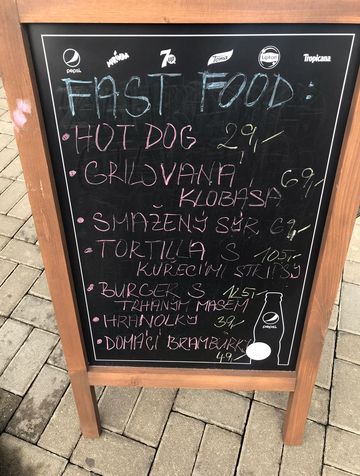 pepsi MIRINDA 7up Toma Lipton Tropicana
FAST FOOD:
• HOT DOG 29,-
• GRILOVANÁ
KLOBÁSA 69,-
• SMAŽENÝ SÝR 69,-
• TORTILLA S 105,-
KUŘECÍMI STRIPSY
• BURGER S 125,-
TRHANÝM MASEM
• HRANOLKY 39,-
• DOMÁCÍ BRAMBŮRKY
49,-
pepsi